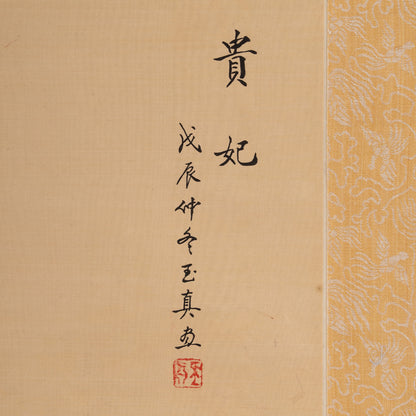 貴妃
戊辰仲冬玉真画